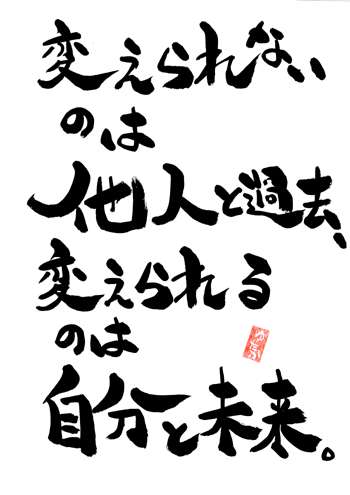 変えられない
のは
他人と過去、
変えられる
のは
自分と未来。
ゆたか